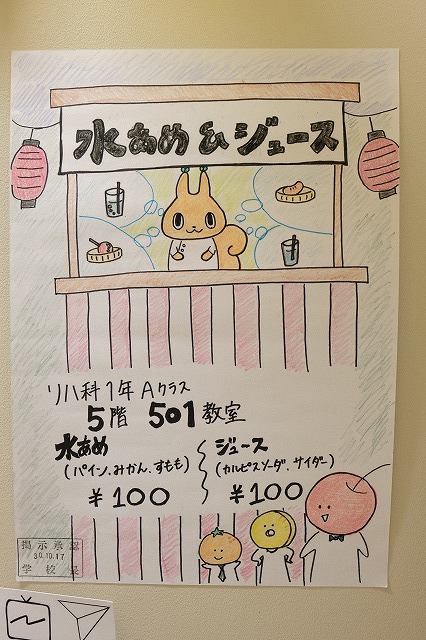 水あめ&ジュース
リハ科1年Aクラス
5階 501教室
水あめ
(パイン、みかん、すもも)
¥100
ジュース
(カルピスソーダ、サイダー)
¥100
掲示承認
30.10.17
学校長